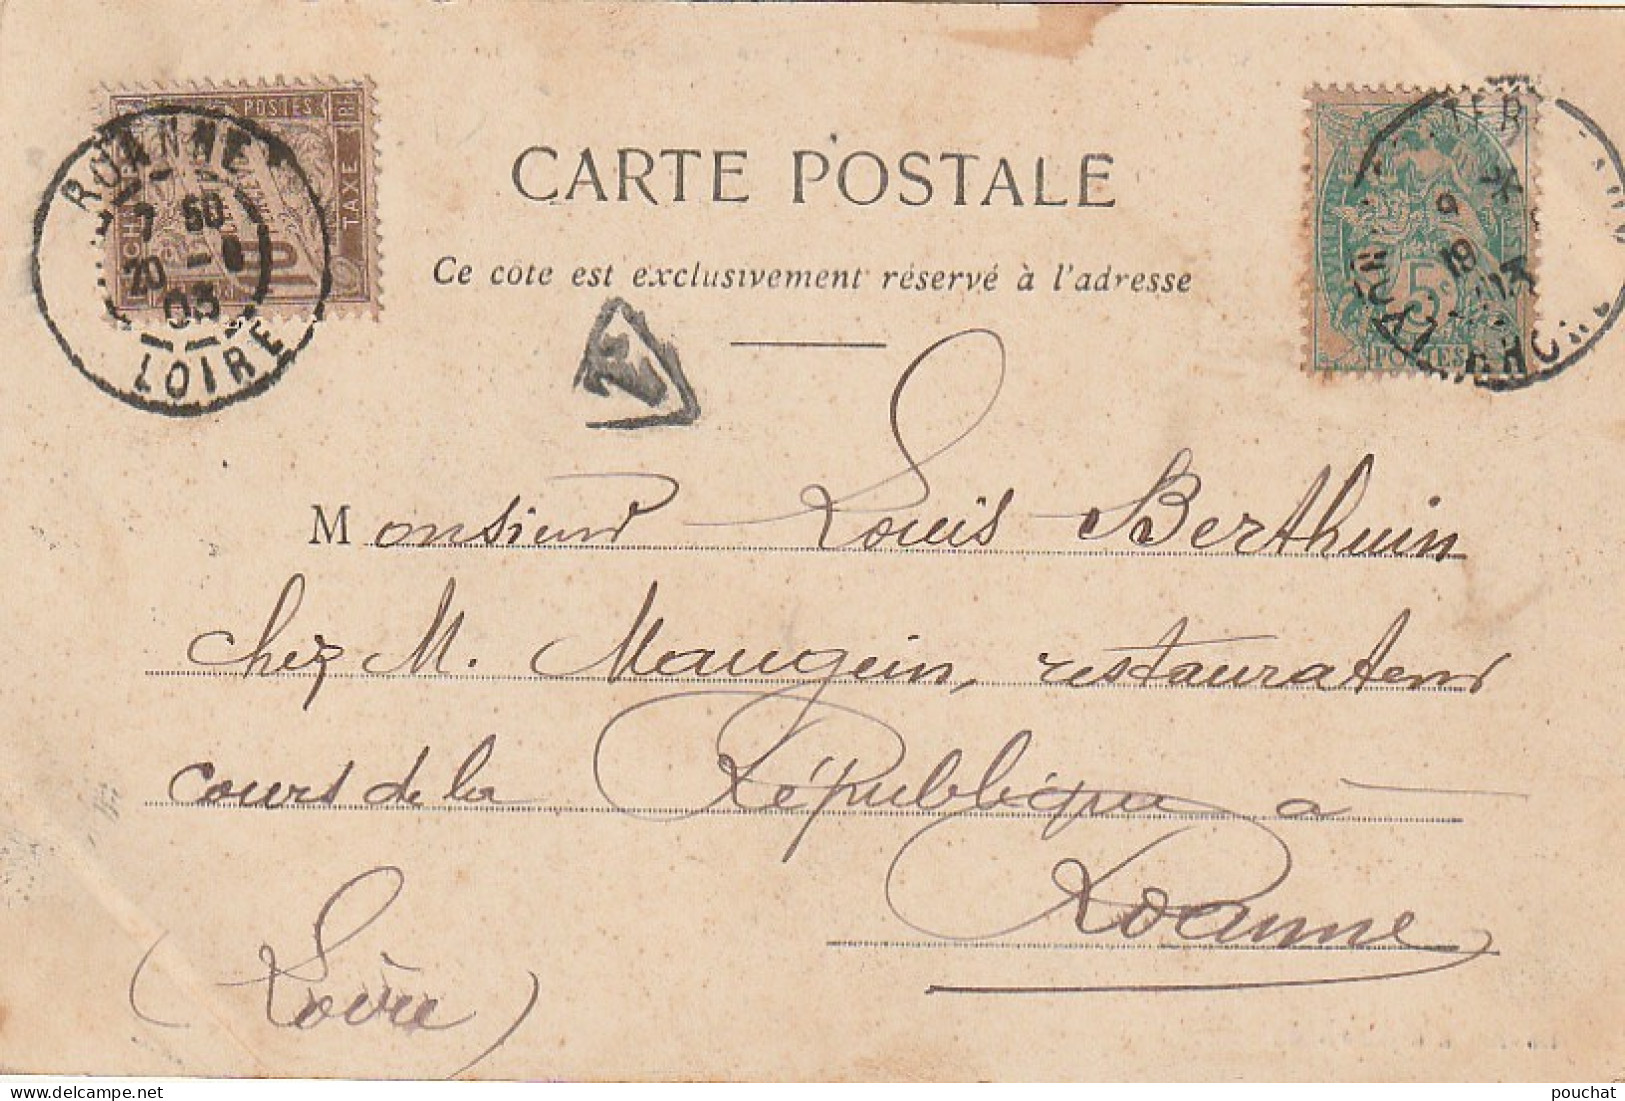 CARTE POSTALE
Ce côté est exclusivement réservé à l'adresse
POSTES
TAXE
10
ROANNE
7 50
20
03
LOIRE
T
5c
POSTES
RHONE
Monsieur Louis Berthuin
chez M. Maugein, restaurateur
cours de la République à
Roanne
(Loire)
pouchat